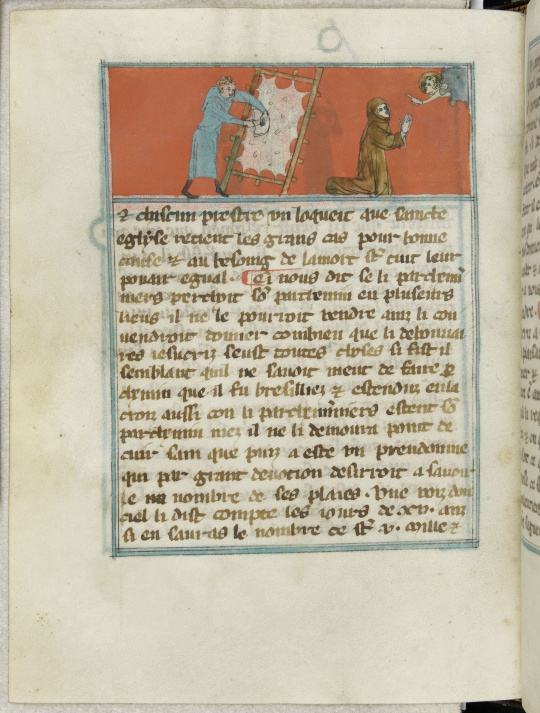 & chascun prestre un loqueit que saincte
eglyse retient les grans cas pour bonne
cause & au besoing de la mort st tuit leur
pouair egual. Ci nous dit se li parchemi
niers percoit so parchemin en pluseurs
lieus il ne le pourroit vendre ainz li con
vendroit donner combien que li debonnai
res ihesucriz seust toutes choses si fist il
semblant quil ne savoit nient de faire p
chemin que il fu bresilliez & estenduz en la
croiz aussi con li parcheminiers estent so
parchemin mez il ne li demoura point de
cuir sain que puiz a este un preudomme
qui par grant devotion desirroit a savoir
le nombre de ses plaies. Une voiz dou
ciel li dist compte les iours de .xv. anz
si en sauras le nombre ce st .v. mille &